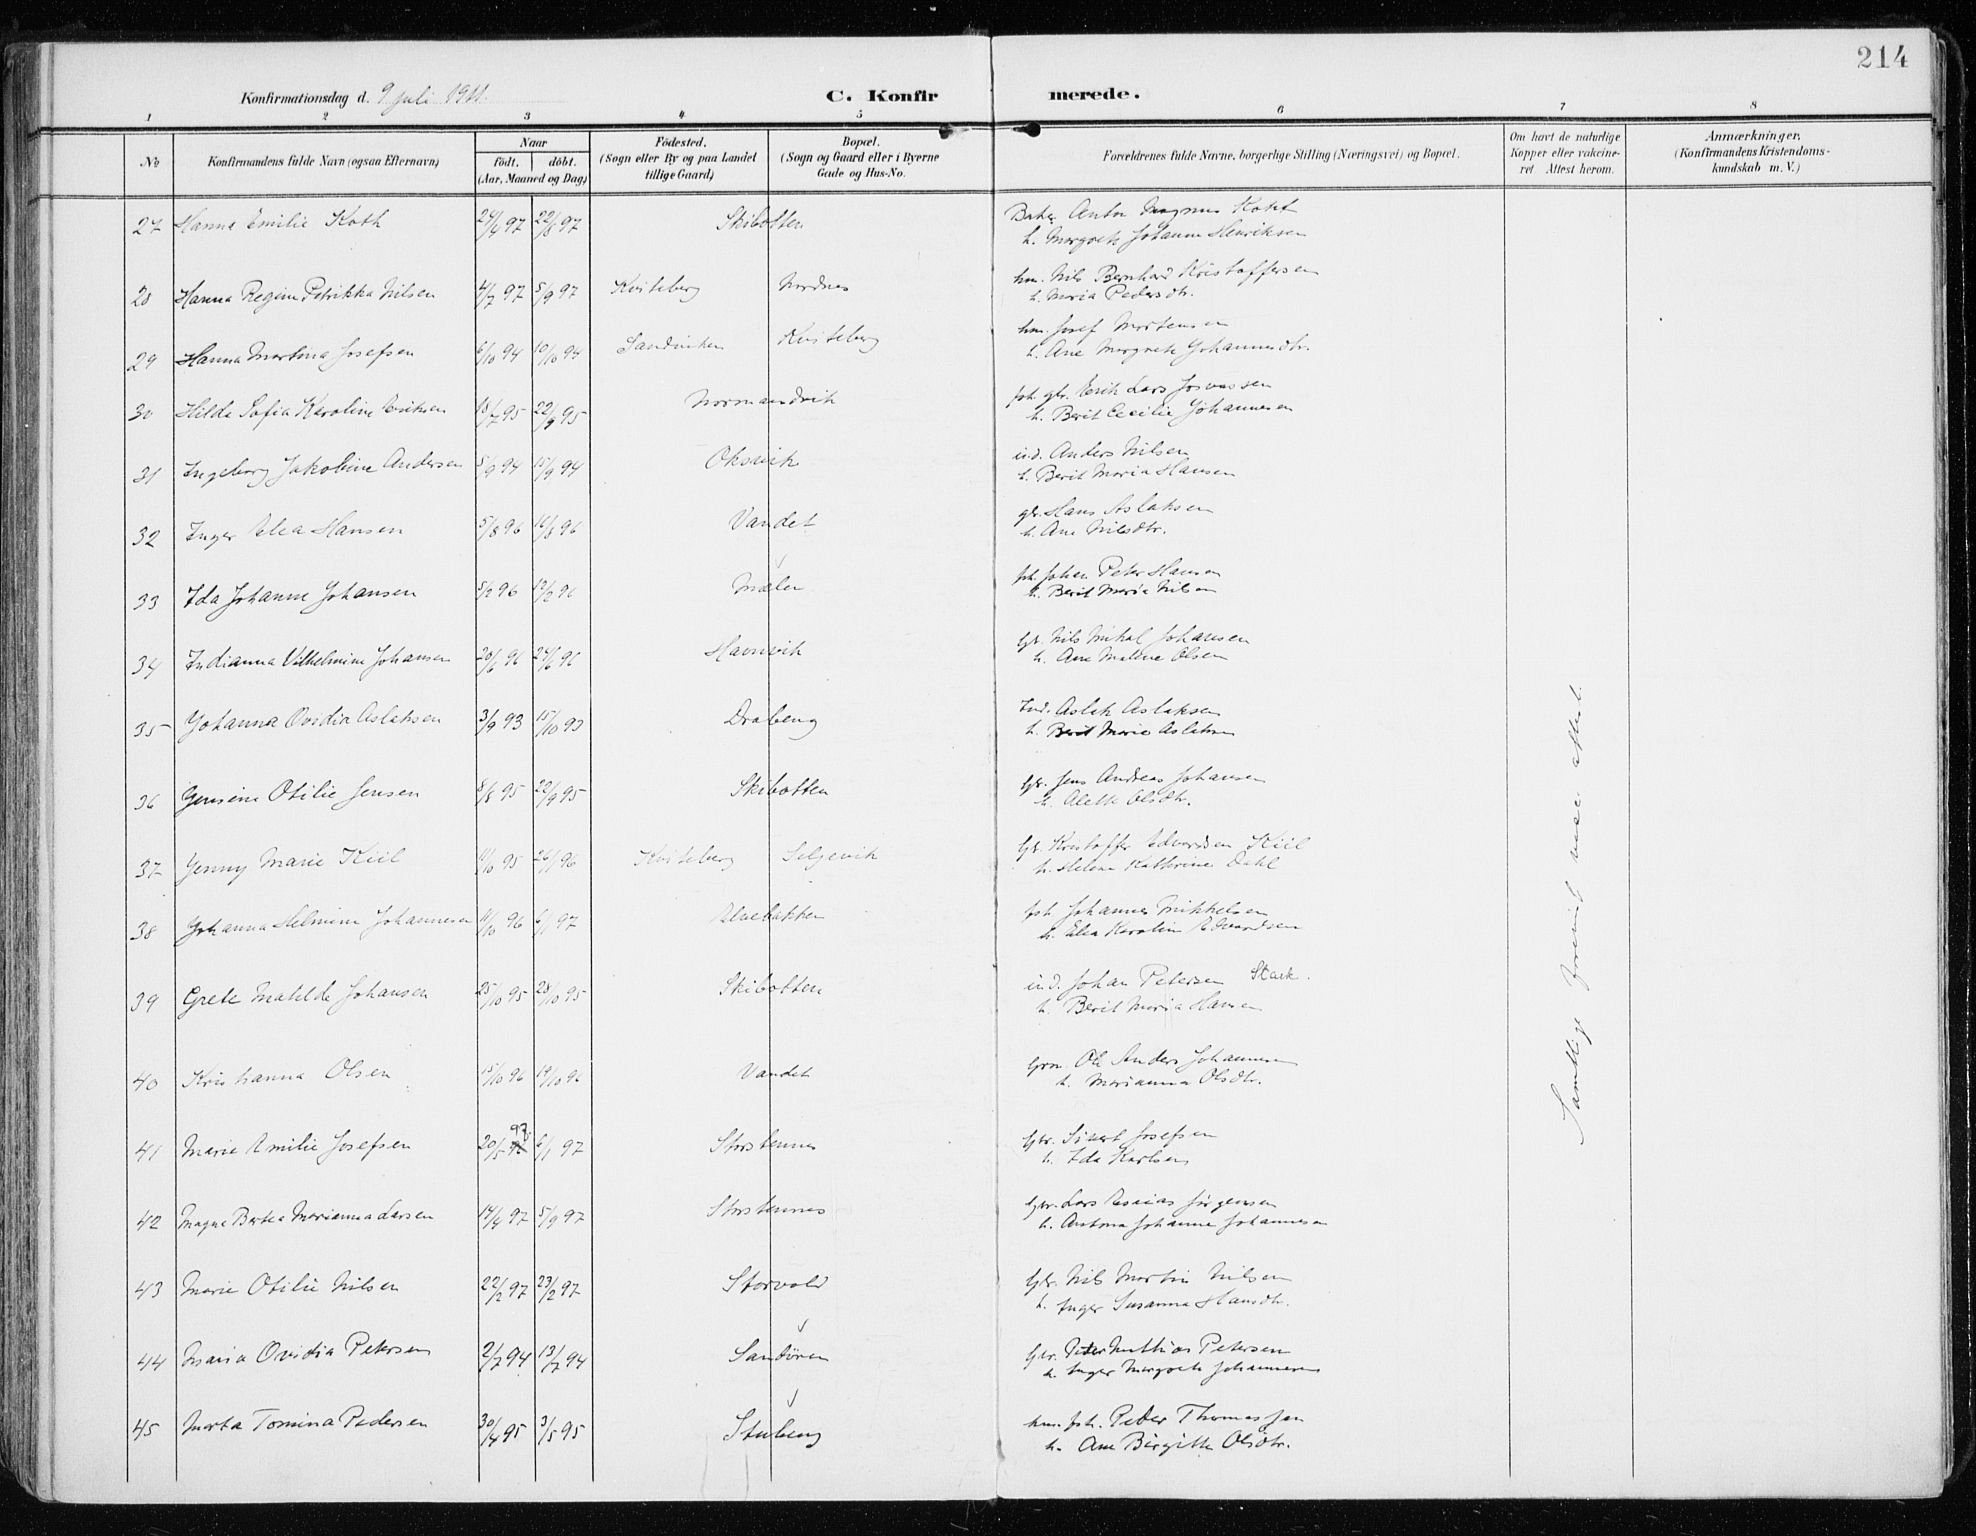 214
Konfirmationsdag d. 9 juli 1911.
C. Konfirmerede.
1 2 3 4 5 6 7 8
No
Konfirmandens fulde Navn (ogsaa Efternavn)
Naar
født. døbt.
(Aar, Maaned og Dag)
Fødested.
(Sogn eller By og paa Landet
tillige Gaard)
Bopæl.
(Sogn og Gaard eller i Byerne
Gade og Hus-No.
Forældrenes fulde Navne, borgerlige Stilling (Næringsvei) og Bopæl.
Om havt de naturlige
Kopper eller vakcine-
ret Attest herom.
Anmærkninger.
(Konfirmandens Kristendoms-
kundskab m. V.)
27 Hanna Emilie Koth 22/8 97 Skibotten Anton Magnus
h. Margrete Johanne Henriksen
28 Hanna Regine Petrikka Nilsen 4/7 97 5/9 97 Kviteberg Nordnes hm. Nils Bernhard Kristoffersen
h. Maria Pedersdtr.
29 Hanna Martina Josefsen 6/10 94 10/10 94 Sandviken Kviteberg hm. Josef Mortensen
h. Ane Margrete Johannesdtr.
30 Hilda Sofia Karoline Eriksen 18/7 95 22/9 95 Normandvik fsk. gbr. Erik Lars Josvassen
h. Berit Cecilie Johannesen
31 Ingeborg Jakobine Andersen 5/9 94 15/9 94 Oksvik ind. Anders Nilsen
h. Berit Maria Hansen
32 Inger Elea Hansen 5/8 96 16/8 96 Vandet gbr. Hans Aslaksen
h. Ane Nilsdtr.
33 Ida Johanne Johansen 5/2 96 Mælen fsk. Johan Peter Hansen
h. Berit Maria Nilsen
34 Indianna Vilhelmine Johansen 20/6 96 24/6 96 Havnvik Gbr. Nils Mikal Johansen
h. Ane Malene Olsen
35 Johanna Ovidia Aslaksen 3/9 93 15/10 93 Draberg Ind. Aslak Aslaksen
h. Berit Marie Aslaksen
36 Jensine Otilie Jensen 8/8 95 22/9 95 Skibotten Gbr. Jens Andreas Johansen
h. Alette Olsdtr.
37 Jenny Marie Kiil 11/10 95 26/1 96 Kviteberg Selgevik Gbr. Kristoffer Edvardsen Kiil
h. Helene Kathrine Dahl
38 Johanna Helmine Johannesen 11/10 96 6/1 97 Elvebakken fsk. Johannes Mikkelsen
h. Elea Karoline Edvardsen
39 Grete Matilde Johansen 25/10 95 28/10 95 Skibotten ind. Johan Petersen Stark.
h. Berit Maria Hansen
40 Kristianna Olsen 15/10 96 19/10 96 Vandet Gbm. Ole Anders Johannesen
h. Marianna Olsdtr.
41 Marie Emilie Josefsen 20/5 97 6/1 97 Storstennes Gbr. Sivert Josefsen
h. Ida Karlsen
42 Magna Bertea Marianna Larsen 14/4 97 5/9 97 Storstennes Gbr. Lars Esaias Jørgensen
h. Antona Johanne Johannesen
43 Marie Otilie Nilsen 22/2 97 23/2 97 Storvold Gbr. Nils Martin Nilsen
h. Inger Susanna Hansdtr.
44 Maria Ovidia Petersen 2/7 94 13/7 94 Sandøren Gbr. Peter Mathias Petersen
h. Inger Margrete Johannesen
45 Marta Tomina Pedersen 30/4 95 3/5 95 Stuberg hm. fsk. Peder Thomassen
h. Ane Birgitte Olsdtr.
Samtlige forevist vacc. attest.